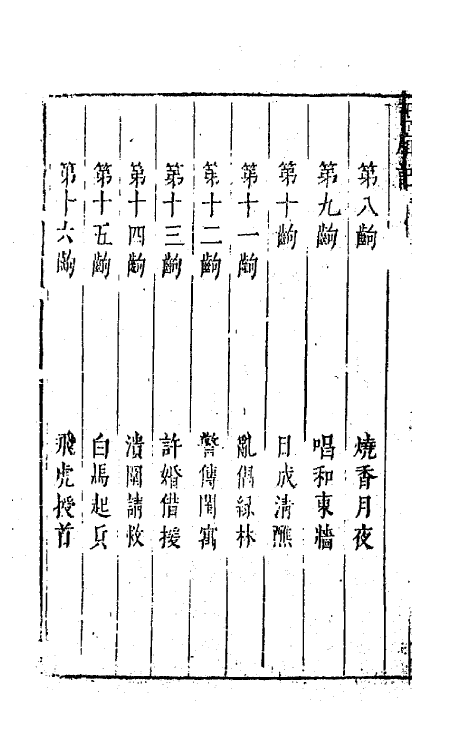 第八齣 燒香月夜
第九齣 唱和東牆
第十齣 目成清醮
第十一齣 亂倡綠林
第十二齣 警傳閨寓
第十三齣 許婚借援
第十四齣 潰圍請救
第十五齣 白馬起兵
第十六齣 飛虎授首